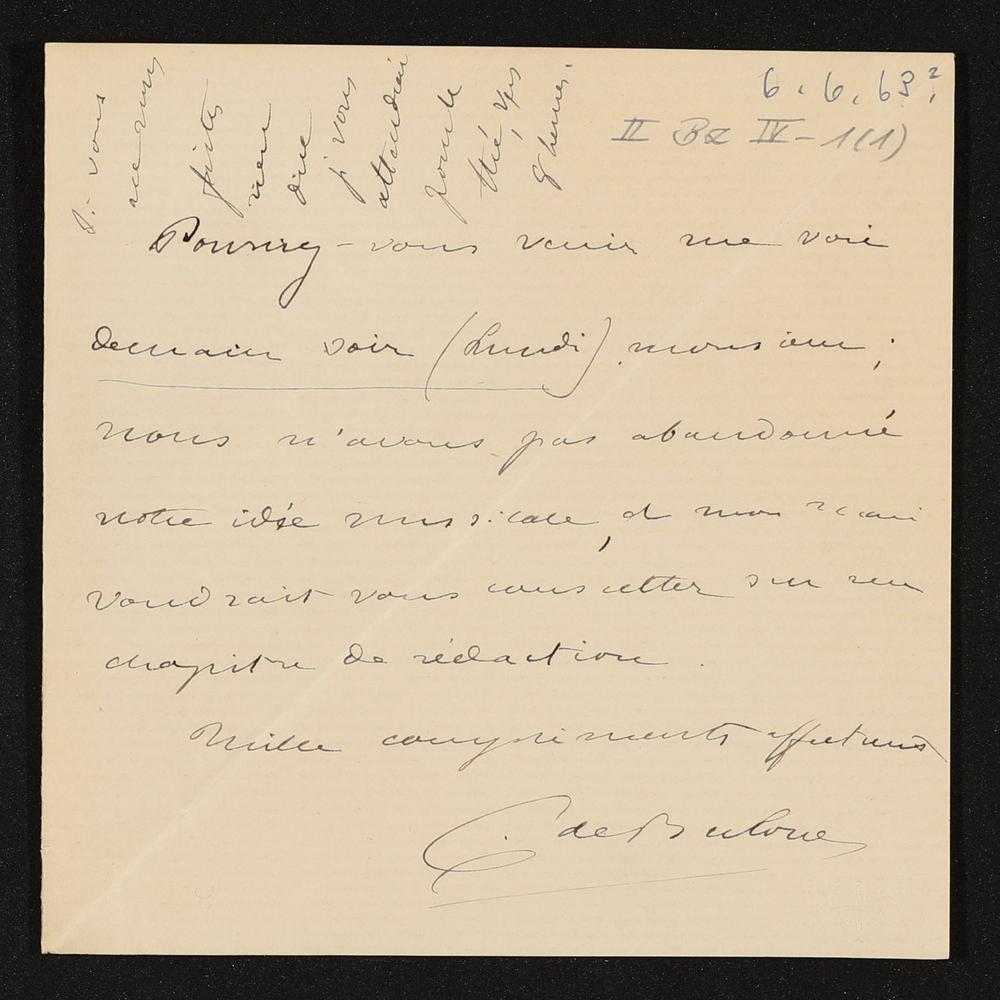 6. 6. 63?
II Bd IV - 1(1)
Pouvez-vous venir me voir
demain soir (Lundi), monsieur ;
nous n'avons pas abandonné
notre idée musicale, et mon mari
voudrait vous consulter sur un
chapitre de rédaction.
Mille compliments affectueux
C de Bulow
Si vous
ne me
faites
rien
dire
je vous
attendrai
pour le
thé, vers
8 heures.